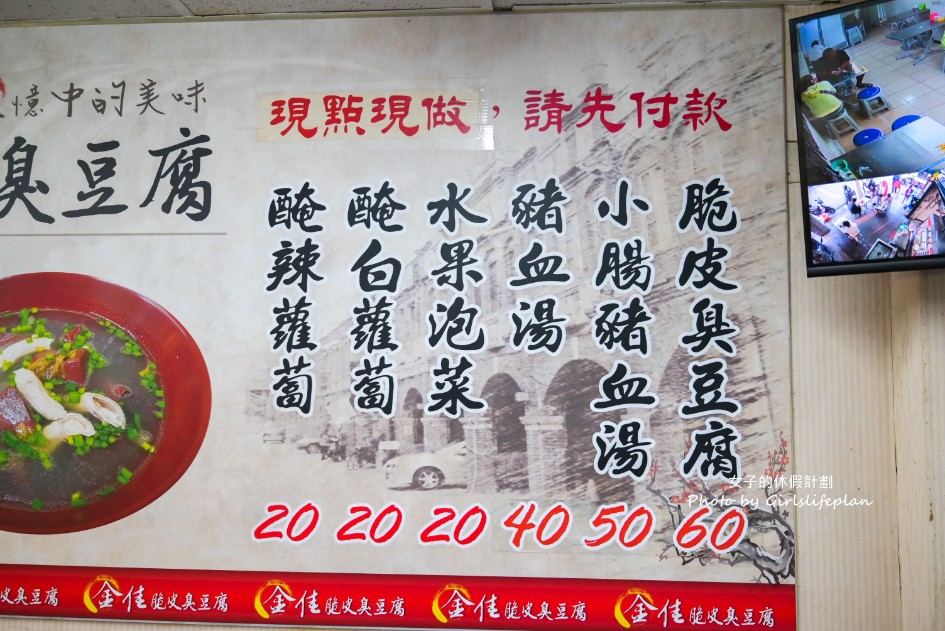 憶中的美味
臭豆腐
現點現做，請先付款
脆皮臭豆腐 60
小腸豬血湯 50
豬血湯 40
水果泡菜 20
醃白蘿蔔 20
醃辣蘿蔔 20
女子的休假計劃
Photo by Girlslifeplan
皮臭豆腐 金佳脆皮臭豆腐 金佳脆皮臭豆腐 金佳脆皮臭豆腐 金佳脆皮臭豆腐